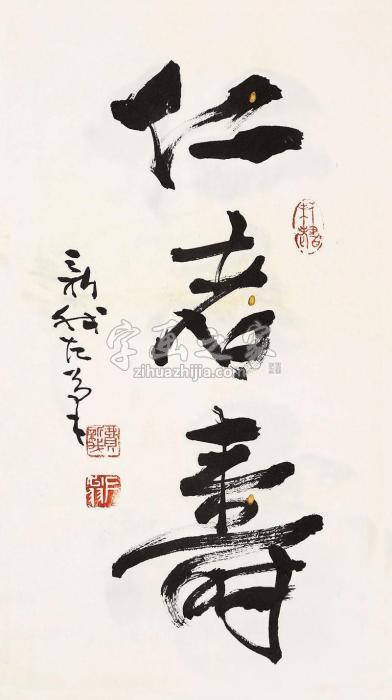 仁者壽
新我左筆
字画之家
zihuazhijia.com